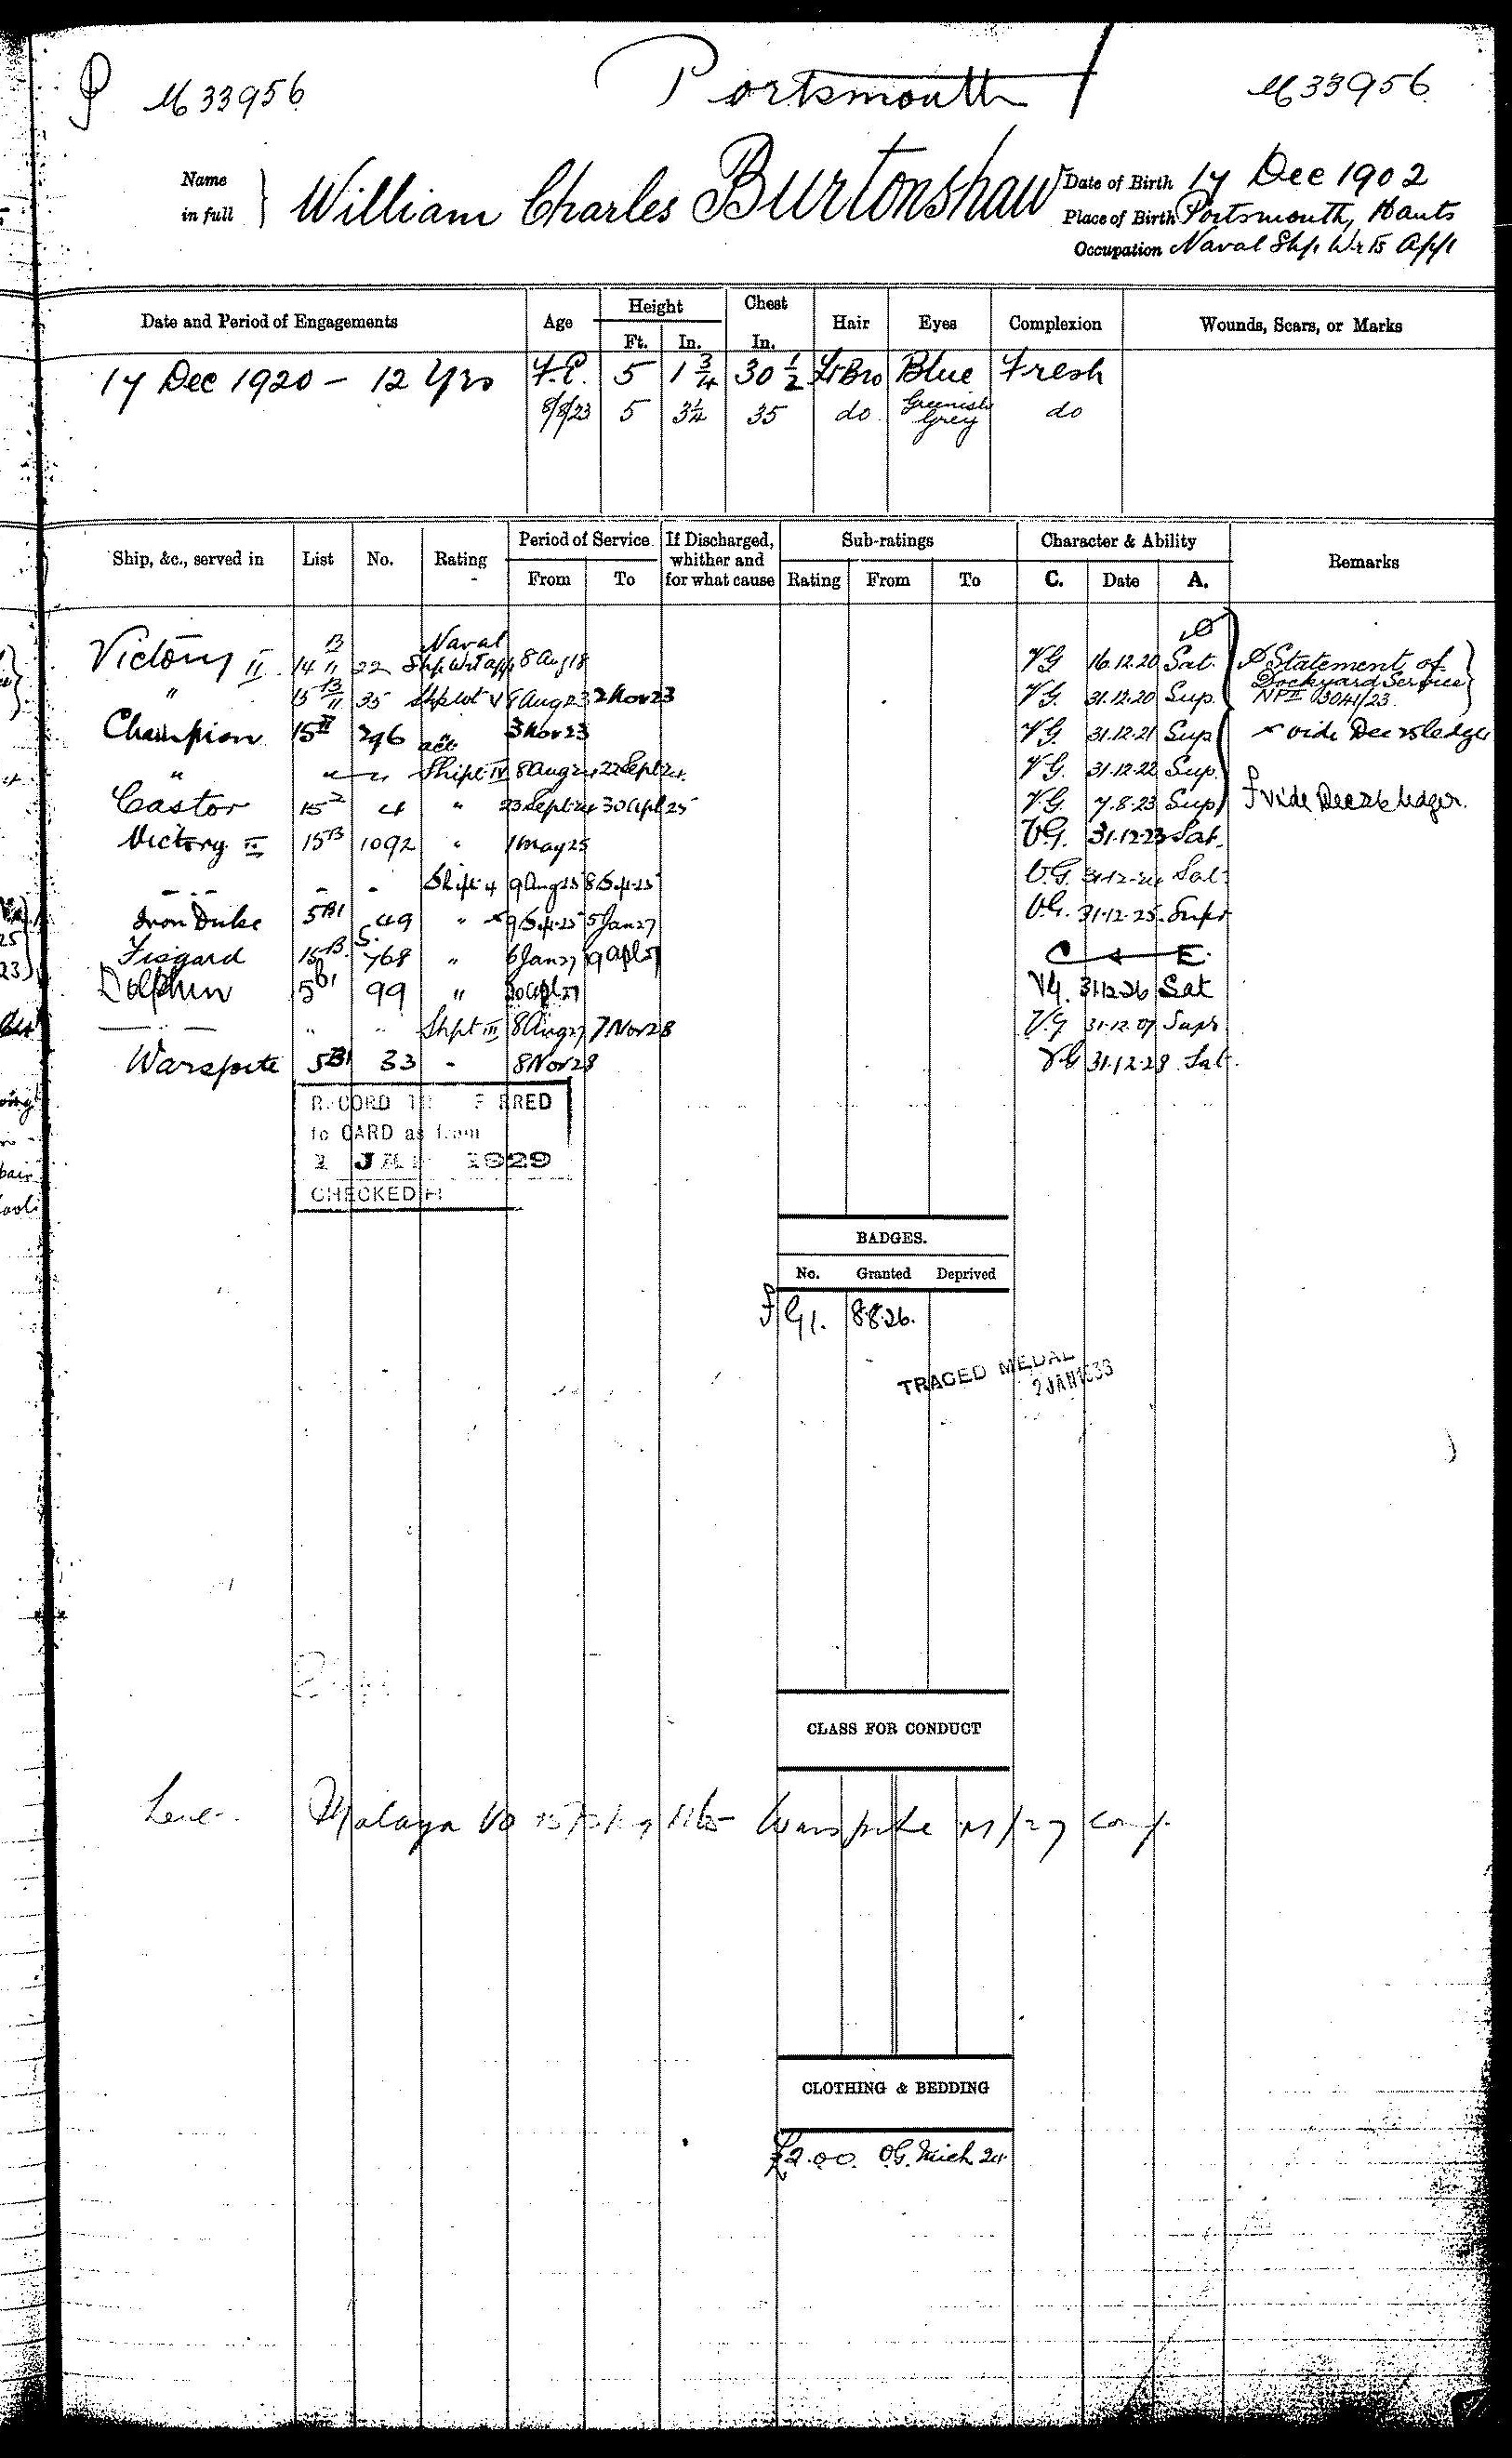 M 33956 Portsmouth M 33956
Name in full William Charles Burtonshaw
Date of Birth 17 Dec 1902
Place of Birth Portsmouth, Hants
Occupation Naval Shp. Wrts App
Date and Period of Engagements Age Height Ft. In. Chest In. Hair Eyes Complexion Wounds, Scars, or Marks
17 Dec 1920 – 12 Yrs 5 1 3/4 30 1/2 Lt Bro Blue Fresh
8/8/23 5 3 1/4 35 do Greenish Grey do
Ship, &c., served in List No. Rating Period of Service From To If Discharged, whither and for what cause Sub-ratings Rating From To Character & Ability C. Date A. Remarks
Victory II 14 B/II 22 Naval Shp Wrt app 8 Aug 18 VG 16.12.20 Sat. Statement of Dockyard Service
" 15 B/II 35 Shpwt V 8 Aug 23 2 Nov 23 VG. 31.12.20 Sup. NP II 3041/23
Champion 15 II 296 " 3 Nov 23 VG. 31.12.21 Sup x vide Dec 25 ledger
" " " act. Shipt. IV 8 Aug 24 22 Sept 24. VG. 31.12.22 Sup.
Castor 15 2 4 " 23 Sept 24 30 Apl 25 VG. 7.8.23 Sup vide Dec 26 ledger.
Victory II 15 B 1092 " 1 May 25 V.G. 31.12.23 Sat.
Shipt. 4 9 Aug 25 8 Sept. 25 V.G. 31-12-24 Sat.
Iron Duke 5 B1 49 " x 9 Sept. 25 5 Jan 27 V.G. 31.12.25. Supr
Fisgard 15 B. S. 768 " 6 Jan 27 19 Apl 27 C E.
Dolphin 5 B1 99 " 20 Apl 27 VG. 31.12.26 Sat
" " Shpt III 8 Aug 27 7 Nov 28 V.G 31.12.27 Supr
Warspite 5 B1 33 - 8 Nov 28 VG 31.12.28 Sat.
to CARD as from
1 JAN 1929
CHECKED
BADGES.
No. Granted Deprived
G1. 8.8.26.
TRACED MEDAL
2 JAN 1933
CLASS FOR CONDUCT
Malaya Warspite
CLOTHING & BEDDING
£2.00. O.G. Mich 24.